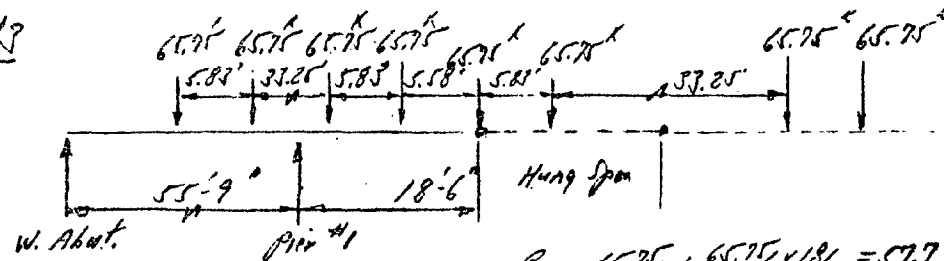 65.75' 65.75ᴷ 65.75ᴷ 65.75ᴷ 65.75ᴷ 65.75ᴷ 65.75ᴷ 65.75ᴷ
5.83' 33.25' 5.83' 5.58' 5.83' 33.25'
55'-9" 18'-6" Hung Span
W. Abut. Pier #1
65.75 + 65.75 x 181 = 57.7